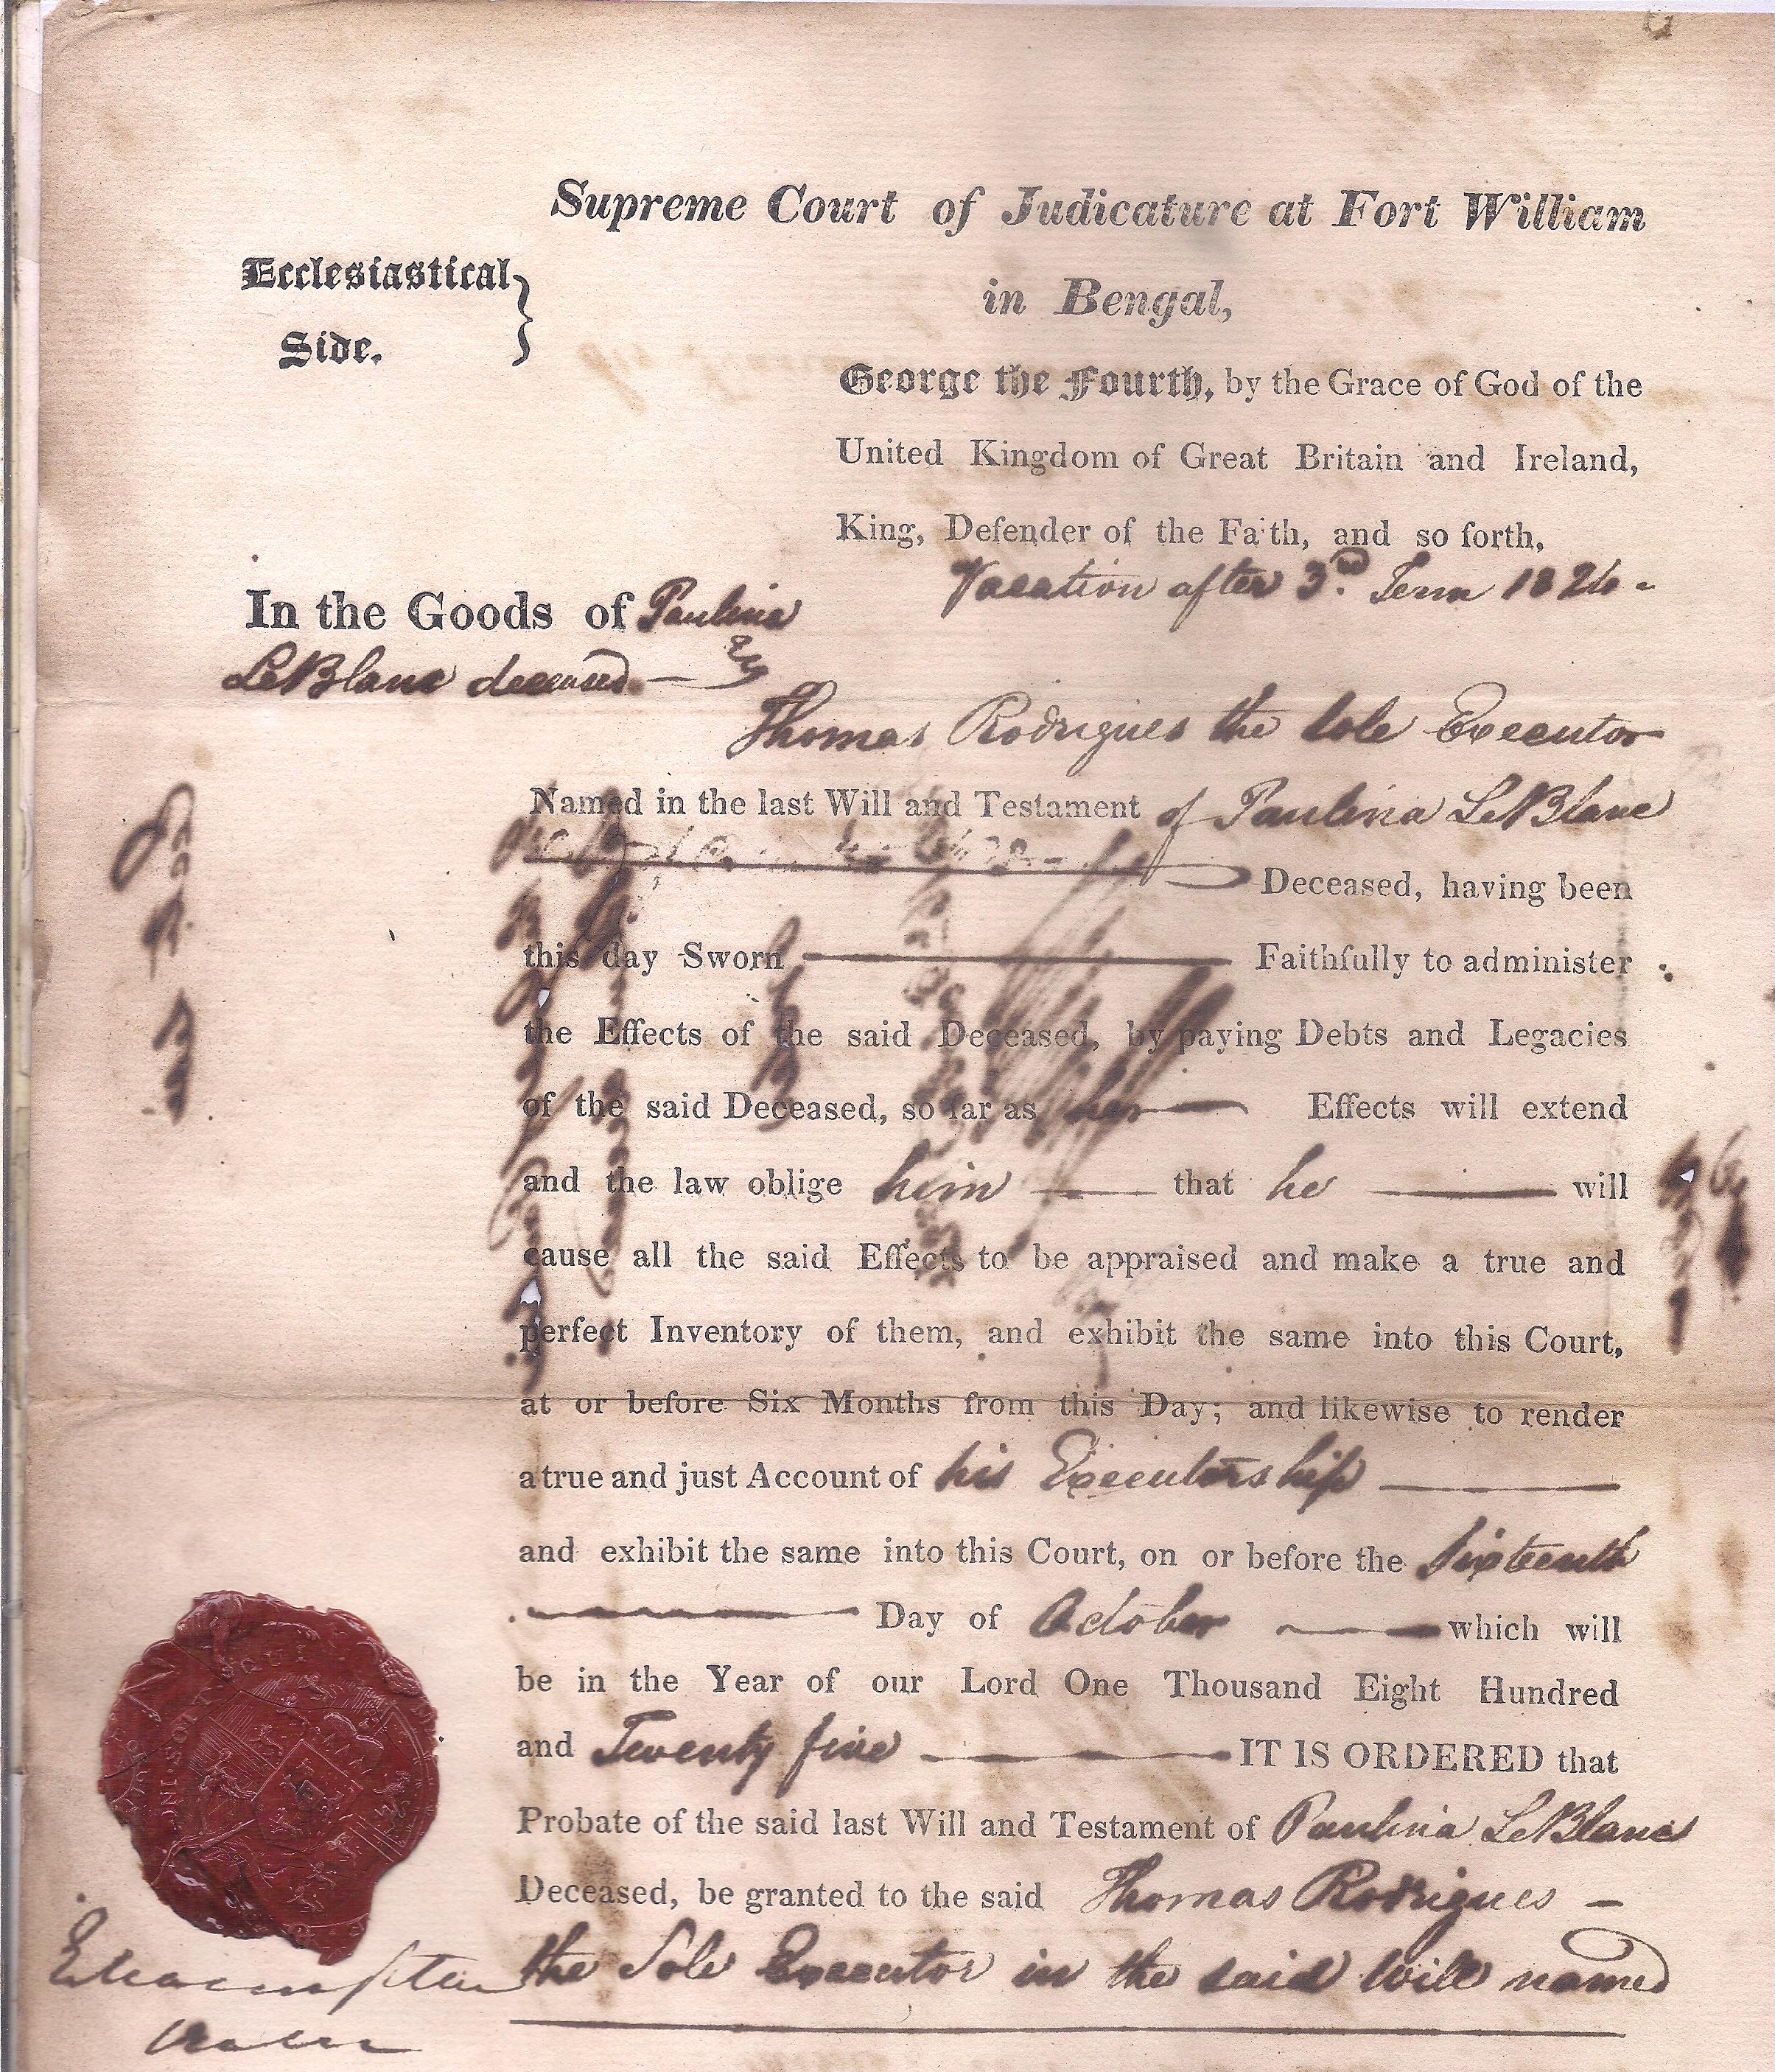 Supreme Court of Judicature at Fort William
in Bengal,
Ecclesiastical
Side.
George the Fourth, by the Grace of God of the
United Kingdom of Great Britain and Ireland,
King, Defender of the Faith, and so forth,
Vacation after 3rd Term 1824
In the Goods of Paulina
LeBlanc deceased
Thomas Rodrigues the Sole Executor
Named in the last Will and Testament of Paulina LeBlanc
Deceased, having been
this day Sworn Faithfully to administer
the Effects of the said Deceased, by paying Debts and Legacies
of the said Deceased, so far as her Effects will extend
and the law oblige him that he will
cause all the said Effects to be appraised and make a true and
perfect Inventory of them, and exhibit the same into this Court,
at or before Six Months from this Day; and likewise to render
a true and just Account of his Executorship
and exhibit the same into this Court, on or before the Sixteenth
Day of October which will
be in the Year of our Lord One Thousand Eight Hundred
and Twenty five IT IS ORDERED that
Probate of the said last Will and Testament of Paulina LeBlanc
Deceased, be granted to the said Thomas Rodrigues
the Sole Executor in the said Will named